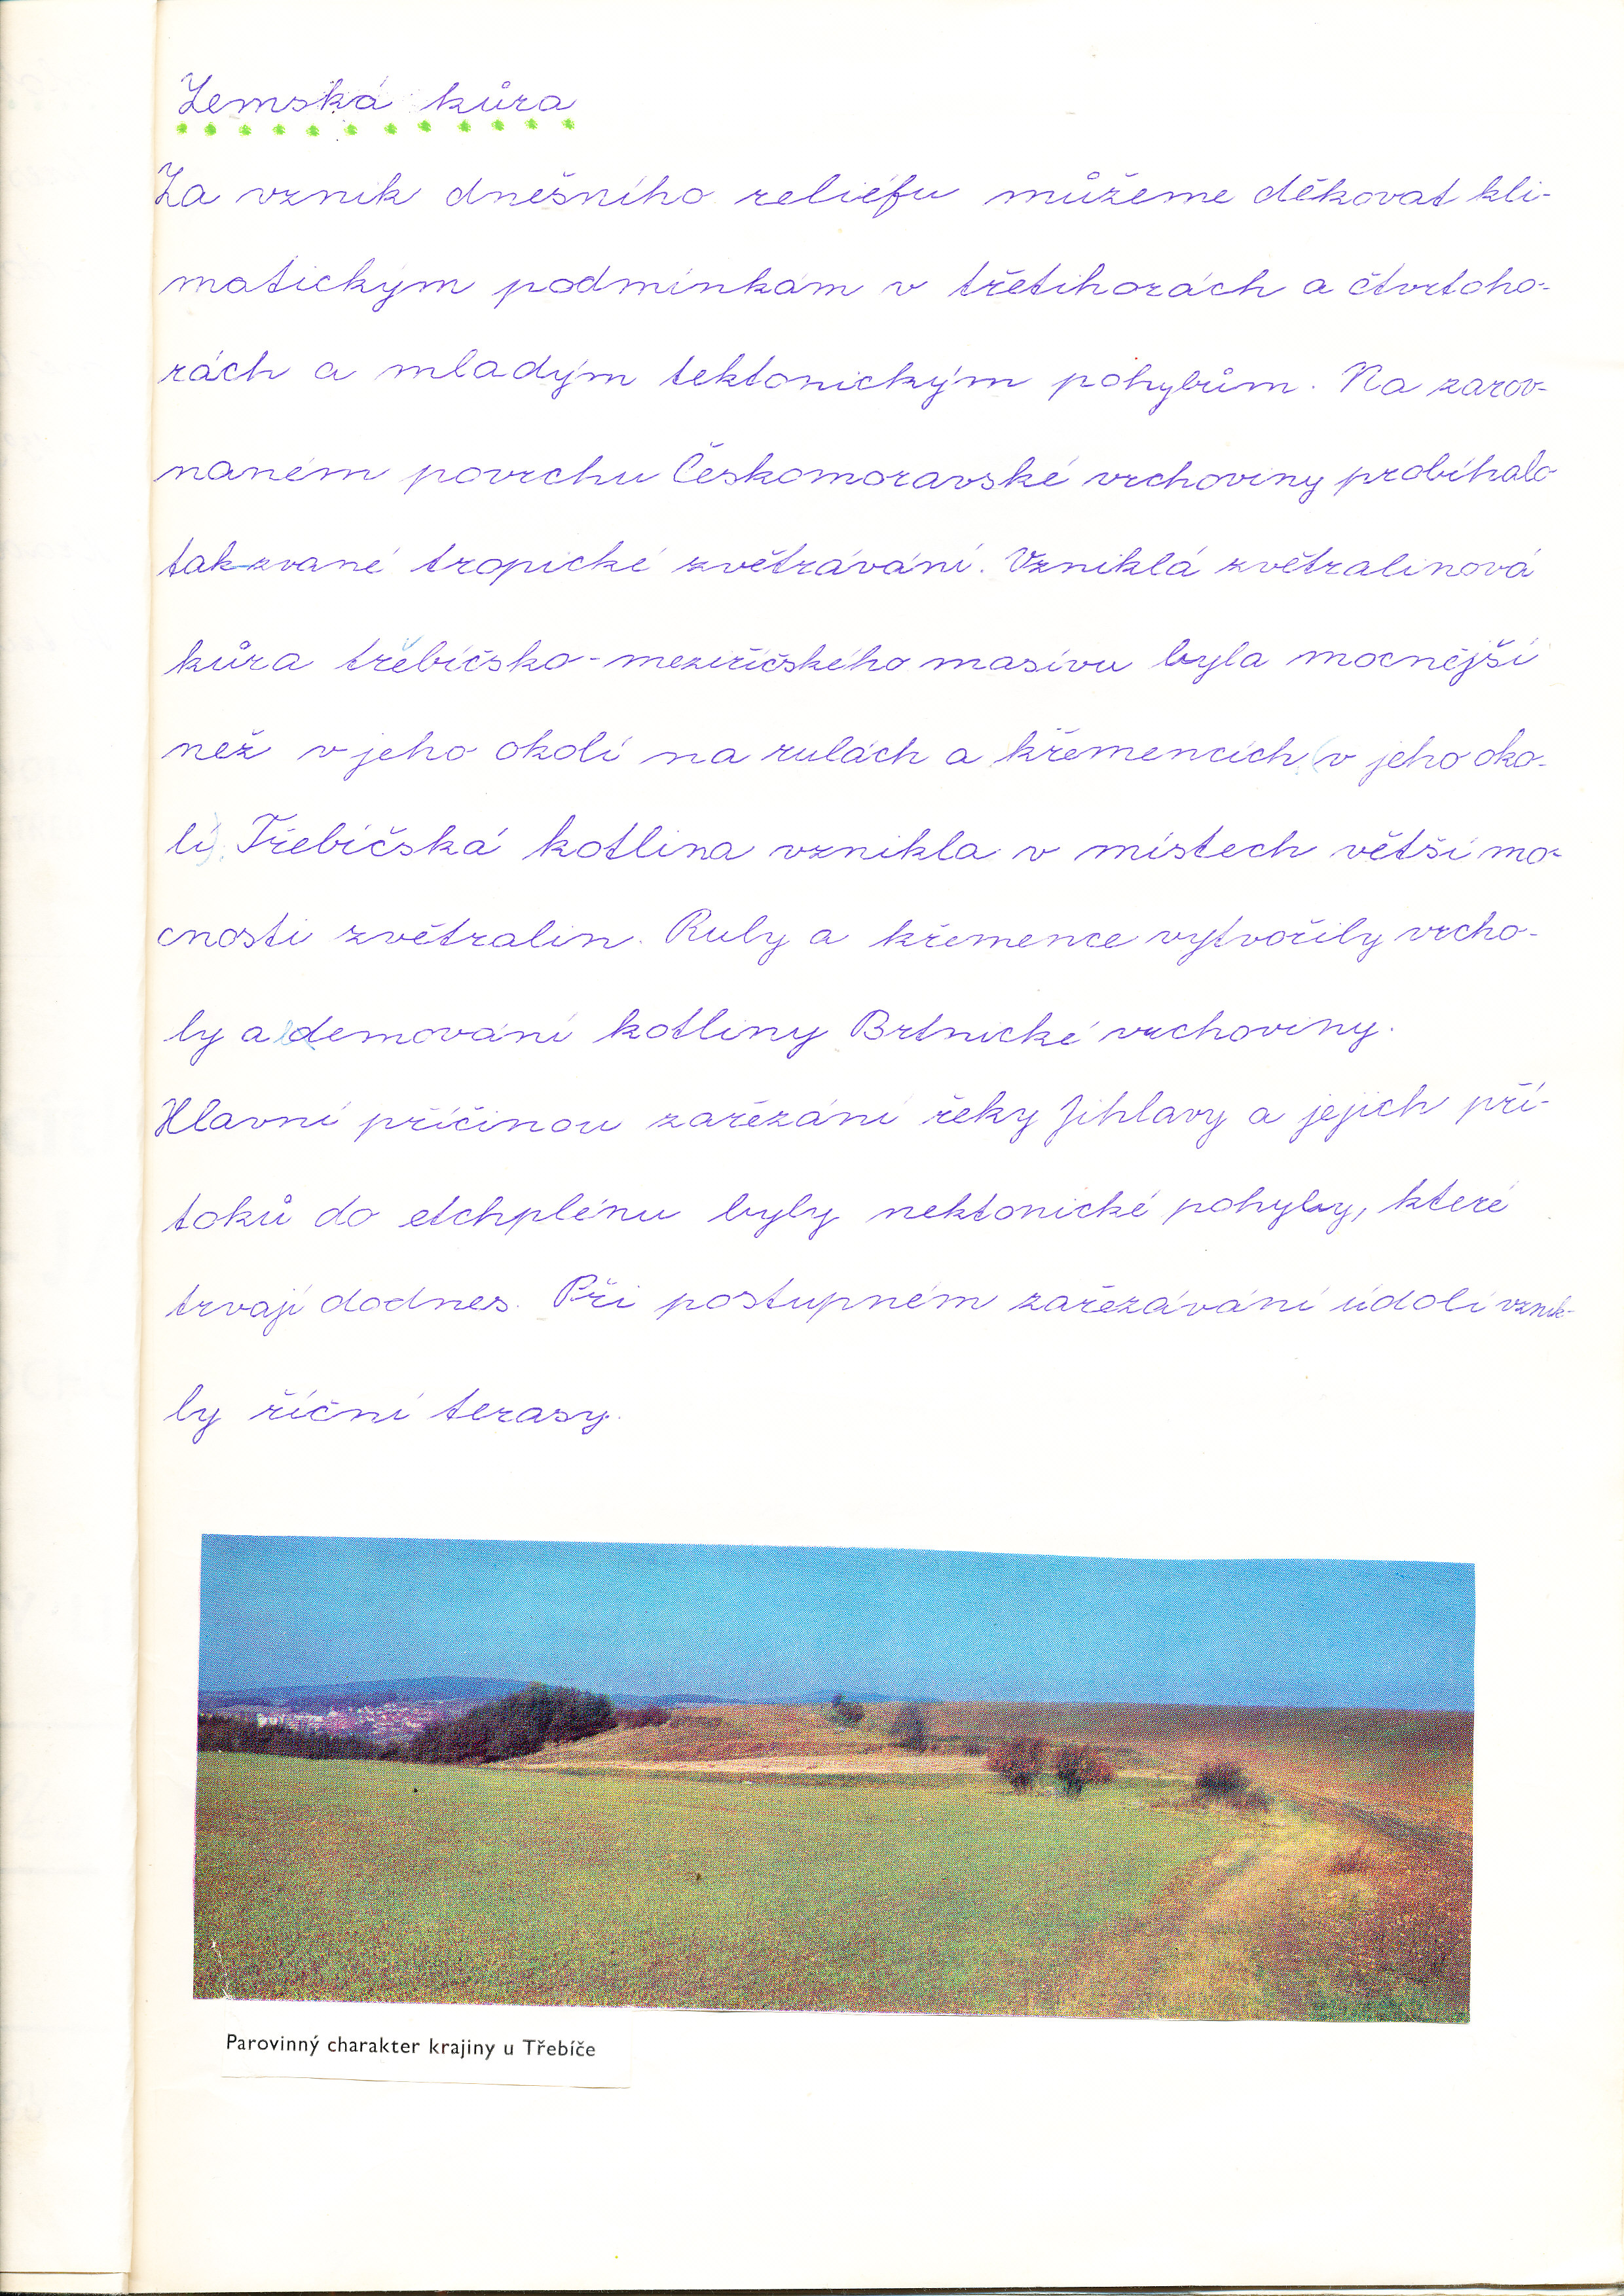 Zemská kůra
Za vznik dnešního reliéfu můžeme děkovat kli-
matickým podmínkám v třetihorách a čtvrtoho-
rách a mladým tektonickým pohybům. Na zarov-
naném povrchu Českomoravské vrchoviny probíhalo
tak zvané tropické zvětrávání. Vzniklá zvětralinová
kůra třebíčsko-meziříčského masívu byla mocnější
než v jeho okolí na rulách a křemencích (v jeho oko-
lí). Třebíčská kotlina vznikla v místech větší mo-
cnosti zvětralin. Ruly a křemence vytvořily vrcho-
ly a kotliny Brtnické vrchoviny.
Hlavní příčinou zařezání řeky Jihlavy a jejich pří-
toků do etchplénu byly nektonické pohyby, které
trvají dodnes. Při postupném zařezávání údolí vznik-
ly říční terasy.
Parovinný charakter krajiny u Třebíče